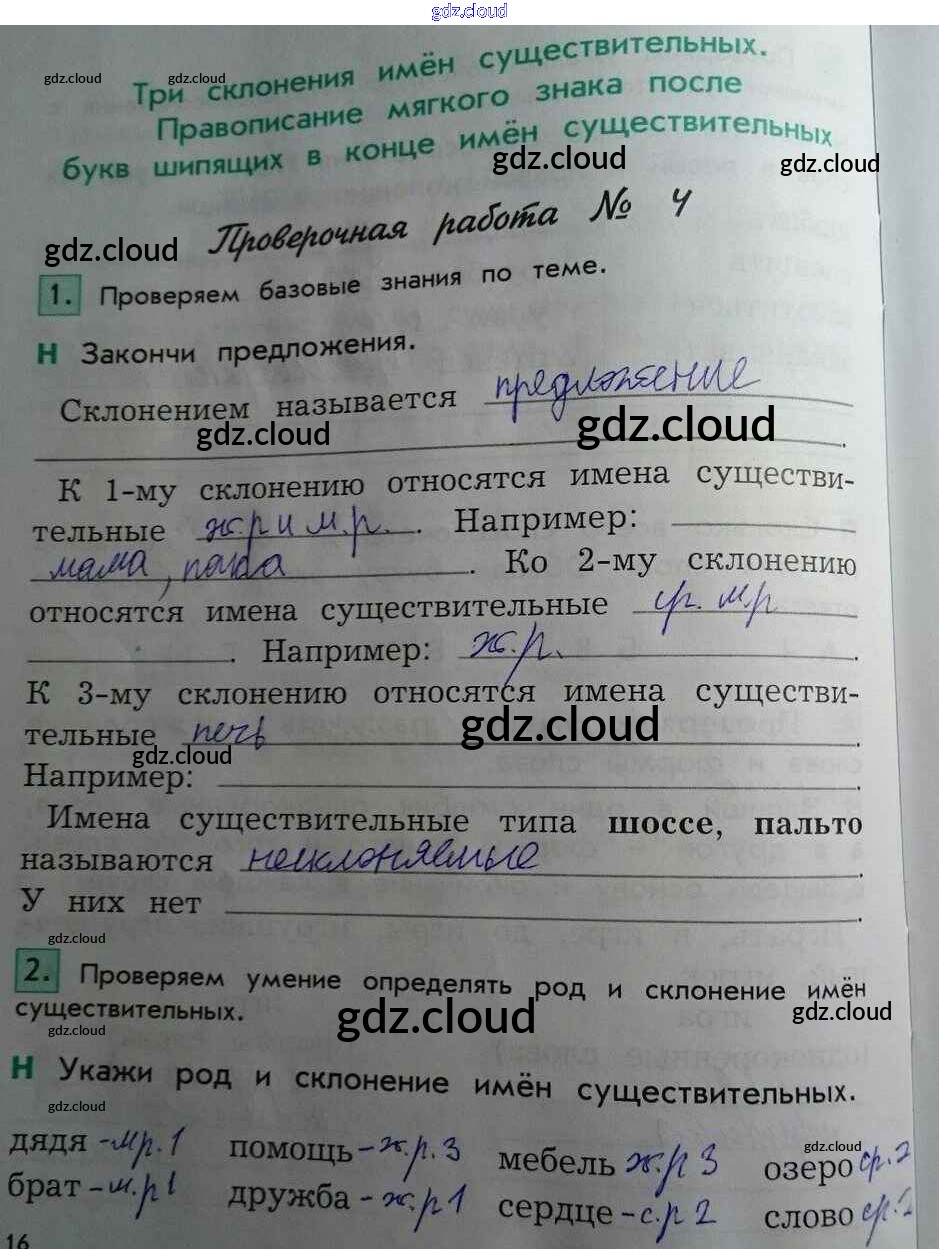 gdz.cloud
Три склонения имён существительных.
gdz.cloud gdz.cloud
Правописание мягкого знака после
букв шипящих в конце имён существительных
gdz.cloud gdz.cloud
Проверочная работа № 4
gdz.cloud
1. Проверяем базовые знания по теме.
Н Закончи предложения.
Склонением называется предложение
gdz.cloud gdz.cloud
К 1-му склонению относятся имена существи-
тельные ж.р и м.р. . Например:
мама, папа . Ко 2-му склонению
относятся имена существительные ср. м.р
. Например: ж.р.
К 3-му склонению относятся имена существи-
gdz.cloud
тельные печь .
gdz.cloud
Например: .
Имена существительные типа шоссе, пальто
называются несклоняемые
У них нет .
gdz.cloud
2. Проверяем умение определять род и склонение имён
существительных.
gdz.cloud gdz.cloud
gdz.cloud
Н Укажи род и склонение имён существительных.
gdz.cloud
дядя - м.р. 1 помощь - ж.р. 3 мебель ж.р 3 озеро ср. 2
gdz.cloud
брат - м.р 1 дружба - ж.р 1 сердце - с.р 2 слово ср. 2
16